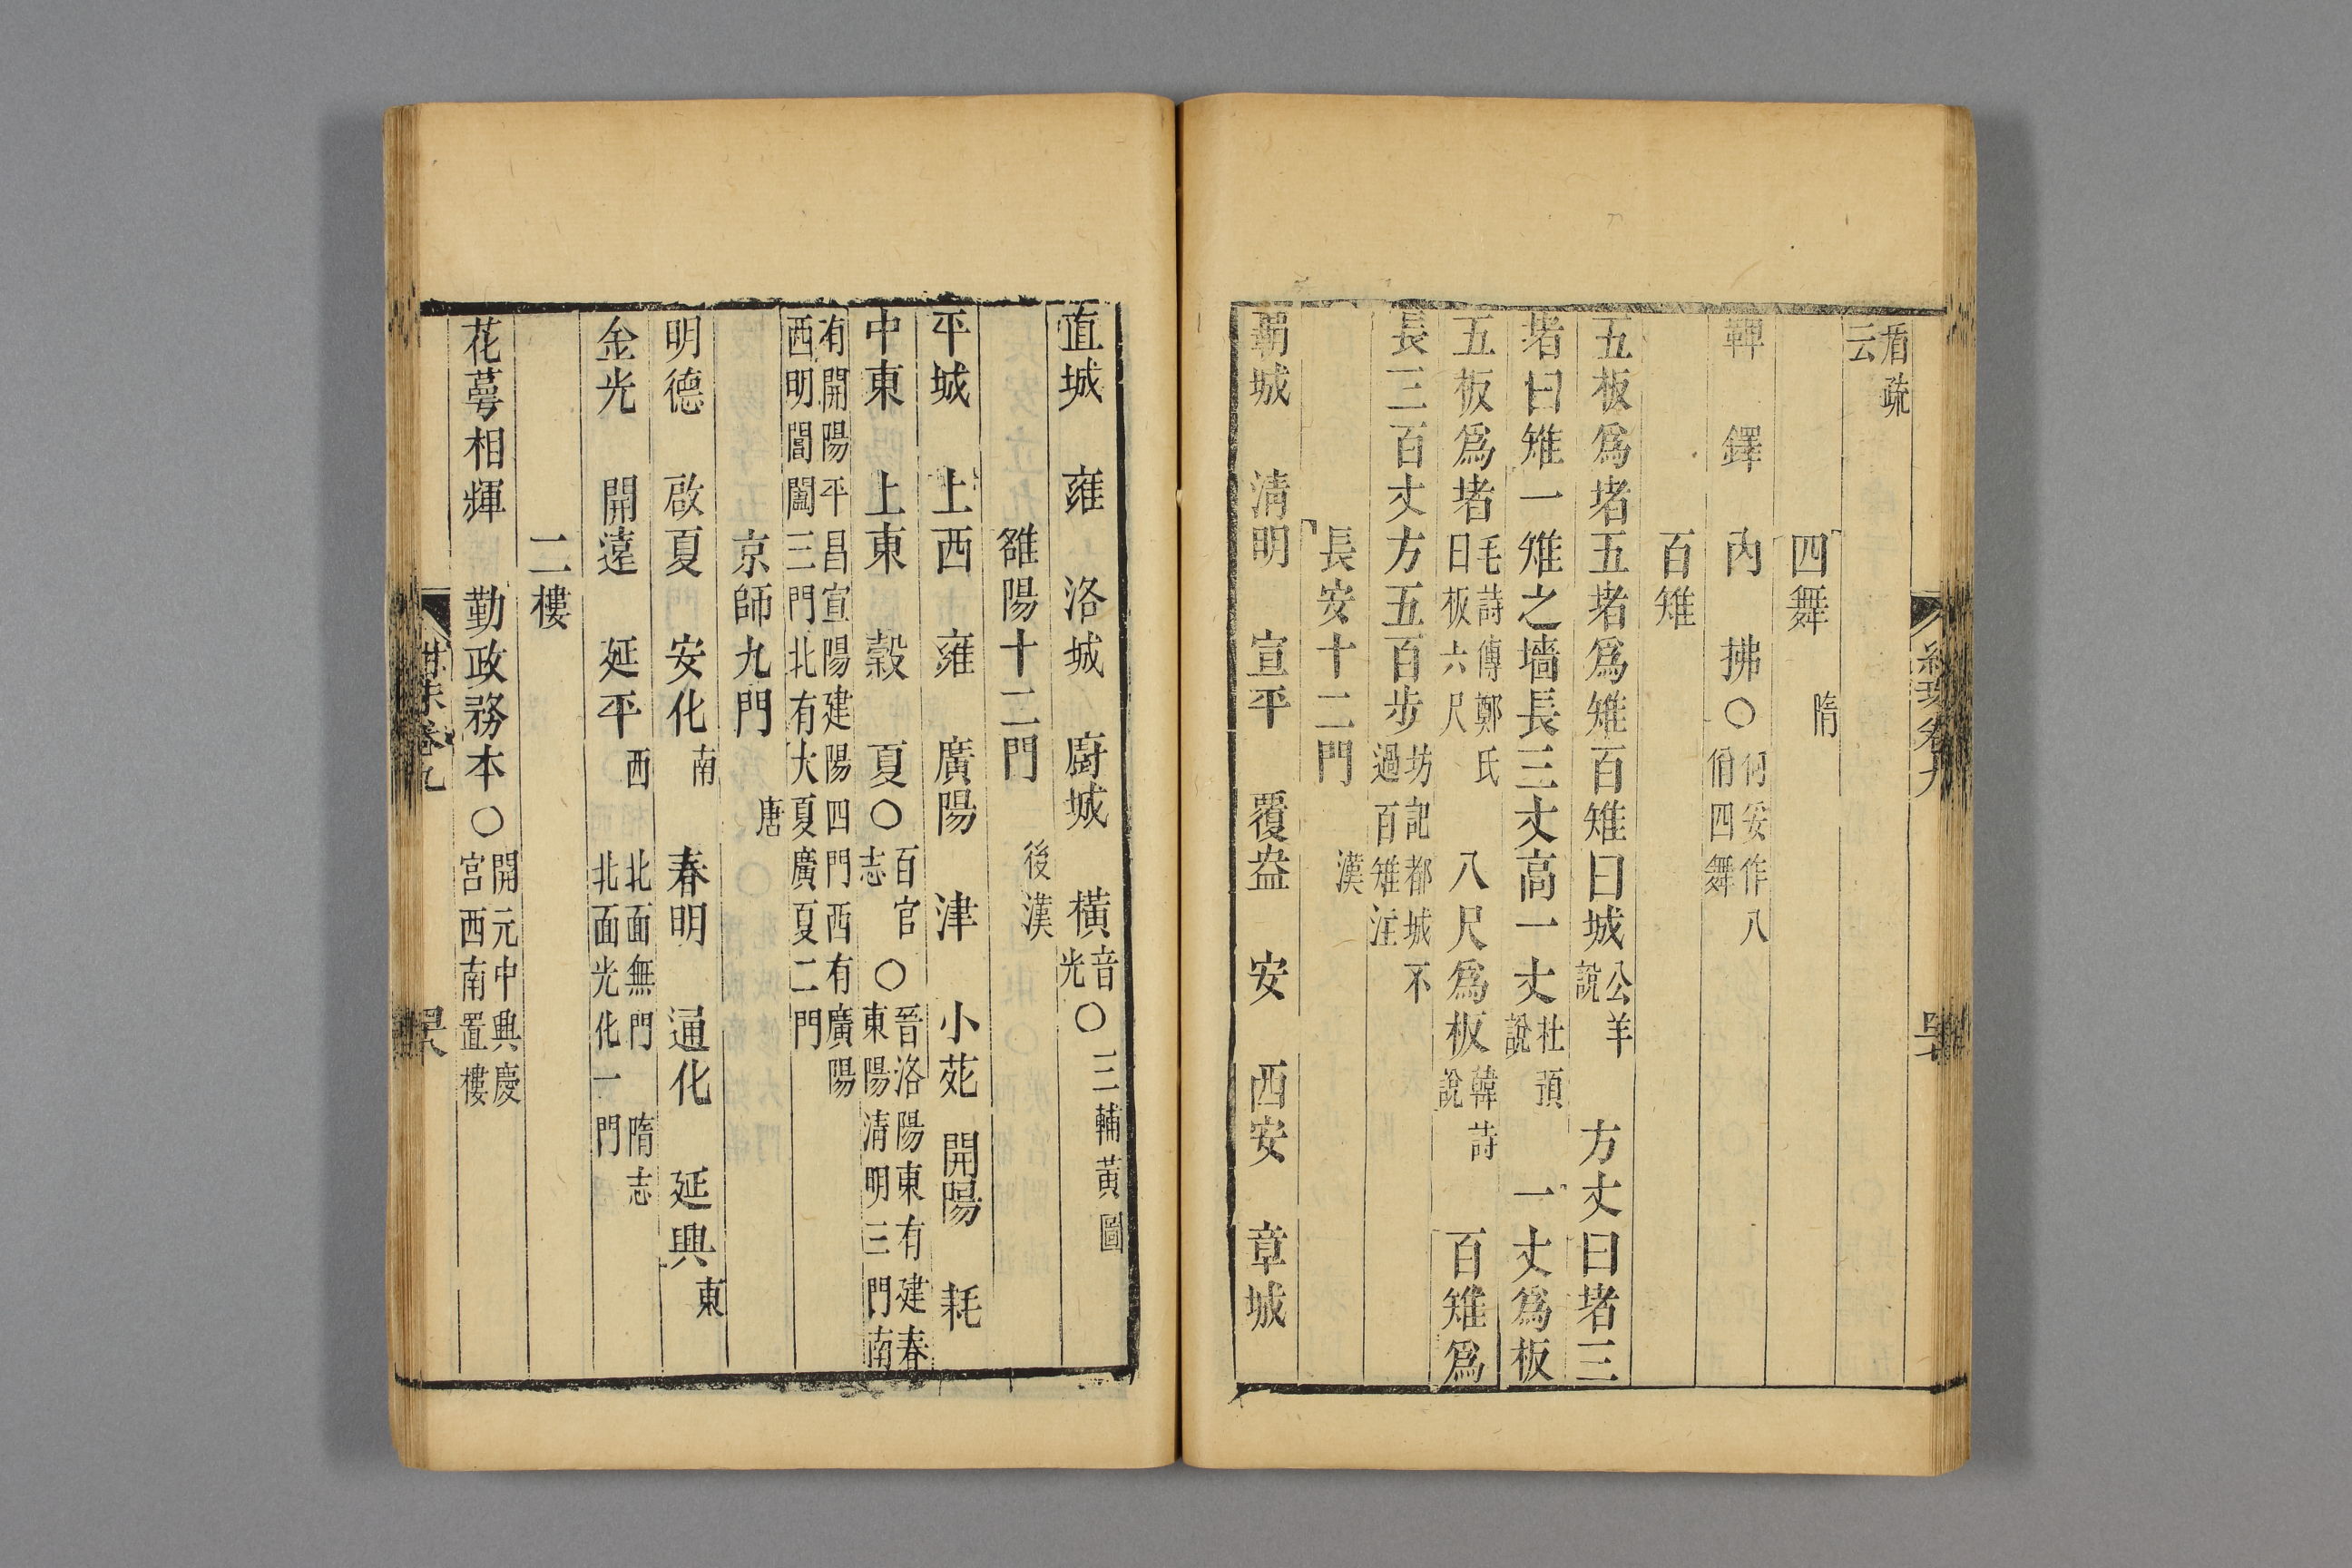 盾疏
云
四舞 隋
鞞 鐸 內 拂○何妥作八
備四舞
百雉
五板爲堵五堵爲雉百雉曰城公羊
說 方丈曰堵三
堵曰雉一雉之墻長三丈高一丈杜預
說 一丈爲板
五板爲堵毛詩傳鄭氏
曰板六尺 八尺爲板韓詩
說 百雉爲
長三百丈方五百步坊記都城不
過百雉注
長安十二門 漢
霸城 淸明 宣平 覆盎 安 西安 章城
直城 雍 洛城 廚城 橫音
光○三輔黃圖
雒陽十二門 後漢
平城 上西 雍 廣陽 津 小苑 開陽 耗
中東 上東 穀 夏○百官
志 ○晉洛陽東有建春
東陽淸明三門南
有開陽平昌宣陽建陽四門西有廣陽
西明閶闔三門北有大夏廣夏二門
京師九門 唐
明德 啟夏 安化南 春明 通化 延興東
金光 開遠 延平西 北面無門 隋志
北面光化一門
二樓
花萼相輝 勤政務本○開元中興慶
宮西南置樓